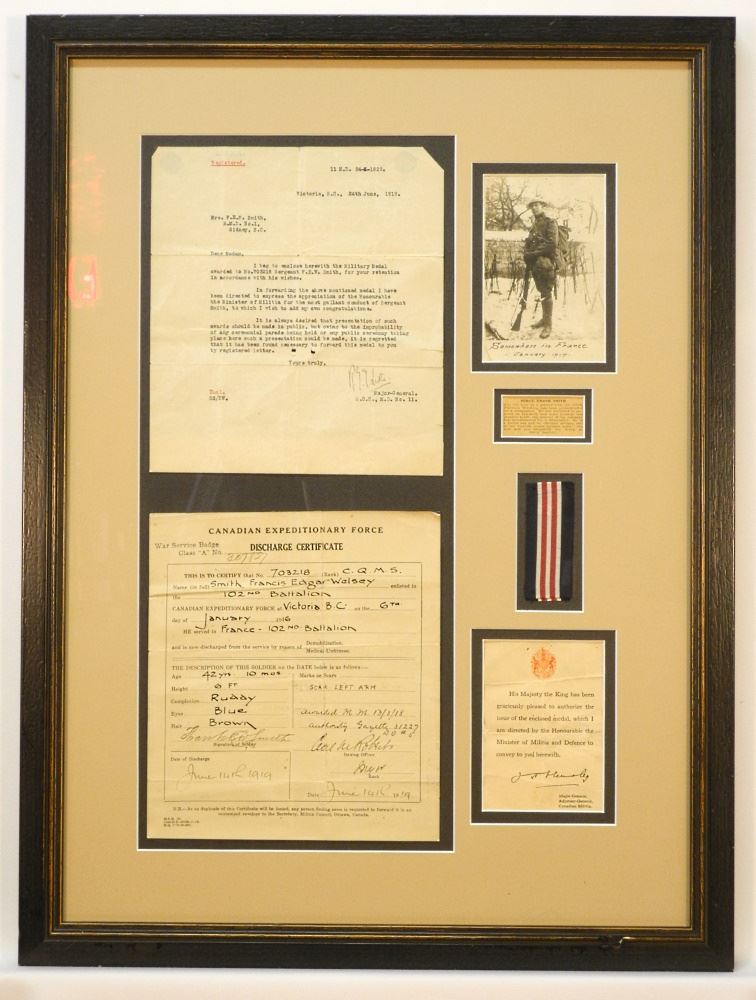 Registered.
Victoria, B.C., 24th June, 1919.
Mrs. F.E.W. Smith,
R.M.D. No.1,
Sidney, B.C.
Dear Madam,
I beg to enclose herewith the Military Medal
awarded to No.703218 Sergeant F.E.W. Smith, for your retention
in accordance with his wishes.
In forwarding the above mentioned medal I have
been directed to express the appreciation of the Honourable
the Minister of Militia for the most gallant conduct of Sergeant
Smith, to which I wish to add my own congratulations.
It is always desired that presentation of such
awards should be made in public, but owing to the improbability
of any ceremonial parade being held or any public ceremony taking
place where such a presentation could be made, it is regretted
that it has been found necessary to forward this medal to you
by registered letter.
Yours truly,
Major-General.
G.O.C., M.D. No. 11.
Encl.
CANADIAN EXPEDITIONARY FORCE
War Service Badge
Class "A" No.
DISCHARGE CERTIFICATE
THIS IS TO CERTIFY that No. 703218 (Rank) C.Q.M.S.
Name (in full) Smith Francis Edgar Wolsey enlisted in
the 102ND Battalion
CANADIAN EXPEDITIONARY FORCE at Victoria B.C. on the 6TH
day of January 1916
HE served in France - 102ND Battalion
and is now discharged from the service by reason of Demobilization.
Medical Unfitness.
THE DESCRIPTION OF THIS SOLDIER on the DATE below is as follows—
Age 42 yrs 10 mos
Height
Complexion Ruddy
Eyes Blue
Hair Brown
Signature of Soldier
Marks or Scars
SCAR LEFT ARM
Awarded M.M. 13/3/18
Authority Gazette 31227
Issuing Officer
Rank
Date of Discharge
June 14th 1919
Date June 14th 1919
N.B.—As no duplicate of this Certificate will be issued, any person finding same is requested to forward it in an
unstamped envelope to the Secretary, Militia Council, Ottawa, Canada.
Somewhere in France
January 1917
SERGT. FRANK SMITH
His Majesty the King has been
graciously pleased to authorize the
issue of the enclosed medal, which I
am directed by the Honourable the
Minister of Militia and Defence to
convey to you herewith.
Major-General,
Adjutant-General,
Canadian Militia.